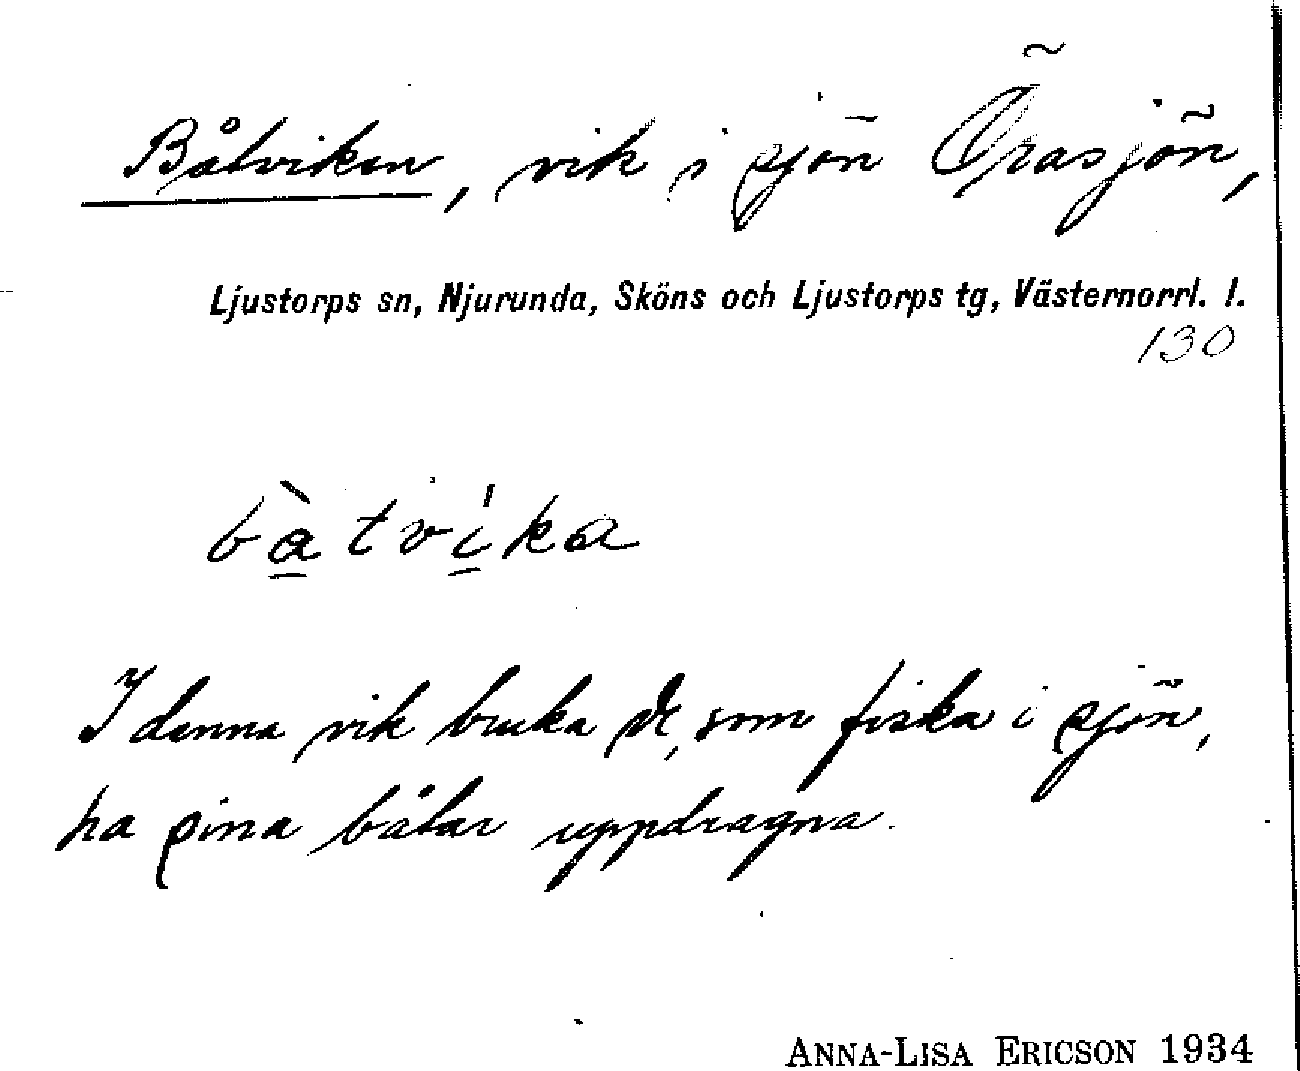 Båtviken, vik i sjön Örasjön,
Ljustorps sn, Njurunda, Sköns och Ljustorps tg, Västernorrl. l.
130
bàtvíka
I denna vik bruka de, som fiska i sjön,
ha sina båtar uppdragna.
ANNA-LISA ERICSON 1934